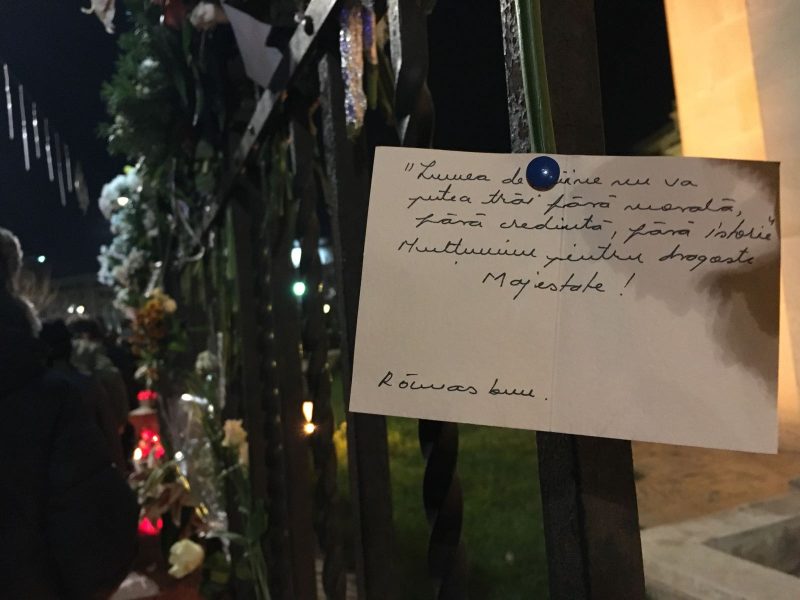 "Lumea de mâine nu va
putea trăi fără morală,
fără credință, fără istorie"
Mulțumim pentru dragoste
Majestate!
Rămas bun.